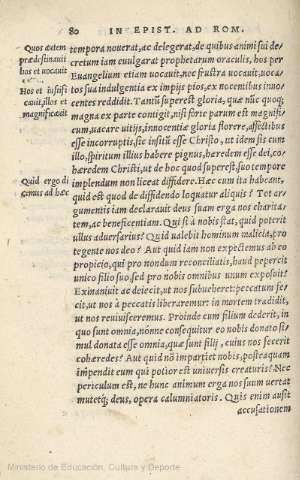 80 IN EPIST. AD ROM.
Quos autem
prædestinauit
hos et vocauit
Hos et iustifi
cauit, illos et
magnificauit
Quid ergo di
cemus ad hæc
tempora nouerat, ac delegerat, de quibus animi sui de-
cretum iam euulgarat prophetarum oraculis, hos per
Euangelium etiam uocauit, nec frustra uocauit, uoca-
tos sua indulgentia ex impijs pios, ex nocentibus inno-
centes reddidit. Tantũ superest gloria, quæ nũc quoq;
magna ex parte contigit, nisi forte parum est magnifi-
cum, uacare uitijs, innocentiæ gloria florere, affectibus
esse incorruptis, sic insitũ esse Christo, ut idem sis cum
illo, spiritum illius habere pignus, hæredem esse dei, co-
hæredem Christi, ut de hoc quod superest, suo tempore
implendum non liceat diffidere. Hæc cum ita habeant,
quid est quod de diffidendo loquatur aliquis? Tot ar-
gumentis iam declarauit deus suam erga nos charita-
tem, ac beneficentiam. Qui si à nobis stat, quid poterit
ullus aduersarius? Quid ualebit hominum malicia, pro
tegente nos deo? Aut quid iam non expectemus ab eo
propicio, qui pro nondum reconciliatis, haud pepercit
unico filio suo, sed pro nobis omnibus unum exposuit?
Exinaniuit ac deiecit, ut nos subueheret: peccatum fe-
cit, ut nos à peccatis liberaremur: in mortem tradidit,
ut nos reuiuisceremus. Proinde cum filium dederit, in
quo sunt omnia, nonne consequitur eo nobis donato si-
mul donata esse omnia, quæ sunt filij, cuius nos fecerit
cohæredes? Aut quid nõ impartiet nobis, posteaquam
impendit eum qui potior est uniuersis creaturis? Nec
periculum est, ne hunc animum erga nos suum uertat
mutetq; deus, opera calumniatoris. Quis enim ausit
accusationem
Ministerio de Educación, Cultura y Deporte